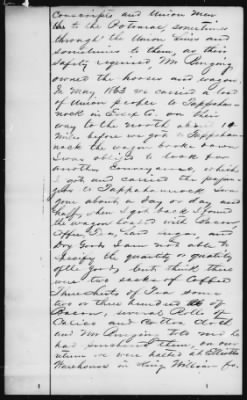 Conscripts and Union Men
to the Potomac, sometimes
through the Union lines and
sometimes to them, as their
safety required, Mr
owned the horses and wagon.
In May 1863 we carried a load
of Union people to Tappahan-
nock in Essex Co, on their
way to the North about 10
miles before we got to Tappahan-
nock the wagon broke down
I was obliged to look for
another conveyance, which
I got and carried the passen-
gers to Tappahannock was
gone about a day or day and
half, when I got back I found
the wagon loaded with Bacon
Coffee, Tea, and sugar and
Dry Goods I am not able to
specify the quantity or quality
of the goods but think there
were two sacks of Coffee
Three chests of Tea some
two or three hundred lbs of
Bacon, several Rolls of
Calico and Cotton cloth
and Mr told me he
had purchased them, on our
return we were halted at
Warehouse in King William Co.